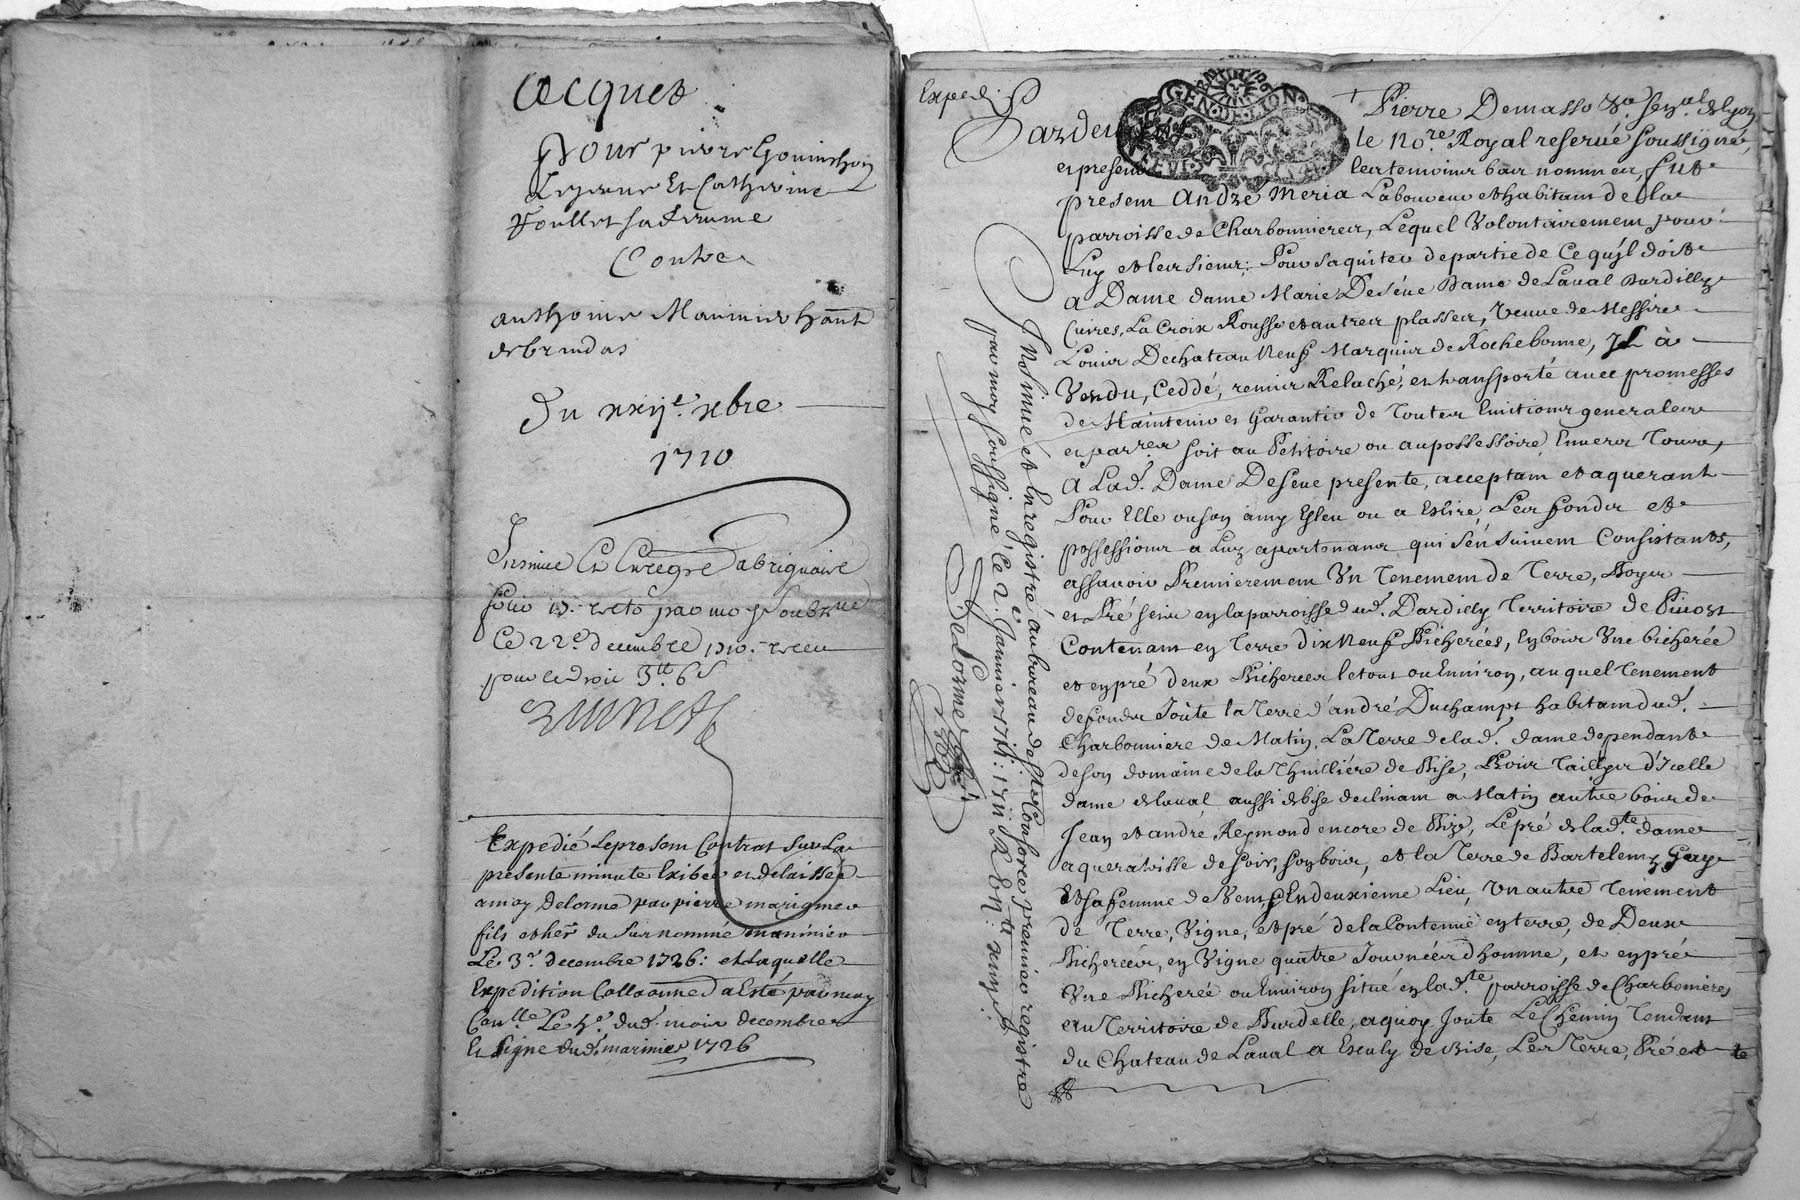 Acquet
Pour pierre Gouinchon
Lejeune Et Catherine
foullet sa femme
Contre
anthoine Marinier hant
de brindas
Du xxije. xbre
1710
Insinué Et Enregré a brignaire
folio 13. recto par moy soubzne
Ce 22e decembre 1710. receu
pour le droit 3tt 6s
Expedié Lepresent Contrat sur La
presente minute Exibée et delaissée
a moy delorme par pierre marignier
fils et her du surnommé marinier
Le 3e. decembre 1726: et laquelle
Expedition Collaonnée a Esté par moy
Conlle Le 4e. dud. mois decembre
Et signé dud. marinier 1726
Exped.
GEN. DE LYON.
Pardev
Pierre Demasso
le Nore. Royal reservé soussigné,
et presens
les temoins bas nommez, fut
present André Meria Laboureur et habitant de la
parroisse de Charbonnieres, Lequel Volontairement pour
Luy et les siens; Pour saquiter de partie de Ce quil doit
a Dame dame Marie Deséve Dame de Laval Dardilly
Cuires, La Croix Rousse et autres places, Veuve de Messire
Louis Dechateau Neuf Marquis de Rochebonne, Il à
Vendu, Ceddé, remis Relaché, et transporté avec promesses
de Maintenir et Garantir de Toutes Evictions generales
et parres soit au Petitoire ou au possessoire Envers Tous,
A Lad. Dame Deseve presente, acceptant et aquerant
Pour Elle ou son amy Esleu ou a Eslire Les fonds et
possessions a Luy apartenans qui s'en suivent Consistants,
assavoir Premierement Un Tenement de Terre, Boys
et Pré scitué en la parroisse dud. Dardilly Territoire de Pinost
Contenant en Terre dix Neuf Bicherées, En bois Une bicherée
et en pré deux Bicherées le tout ou Environ, auquel Tenement
de fonds Joûte la Terre d'andré Duchamps habitant dud.
Charbonniere de Matin, La Terre de lad. dame dependante
de son domaine de la Thuilliére de Bise, Bois Taillys d'Icelle
dame de laval aussi de bise declinant a Matin autre bois de
Jean et andré Reymond encore de Bize, Le pré de ladte. dame
aqueratrisse de soir, son bois, et la Terre de Bartelemy Gay
et sa femme de Vent, Et En deuxieme Lieu, Un autre Tenement
de Terre, Vigne, et pré de la Contenue en terre, de Deux
Bicherées, en Vigne quatre Journées d'homme, et en pré
Une Bicherée ou Environ situé en ladte. parroisse de Charbonieres
au Territoire de Burdelle, a quoy Joute Le Chemin Tendant
du Chateau de Laval a Esculy de Bise, Les Terre, Pré et
Insinué et Enregistré au bureau de Ste Consorce premier registre
par moy soussigné Ce 2e. Janvier 1711:
Delorme